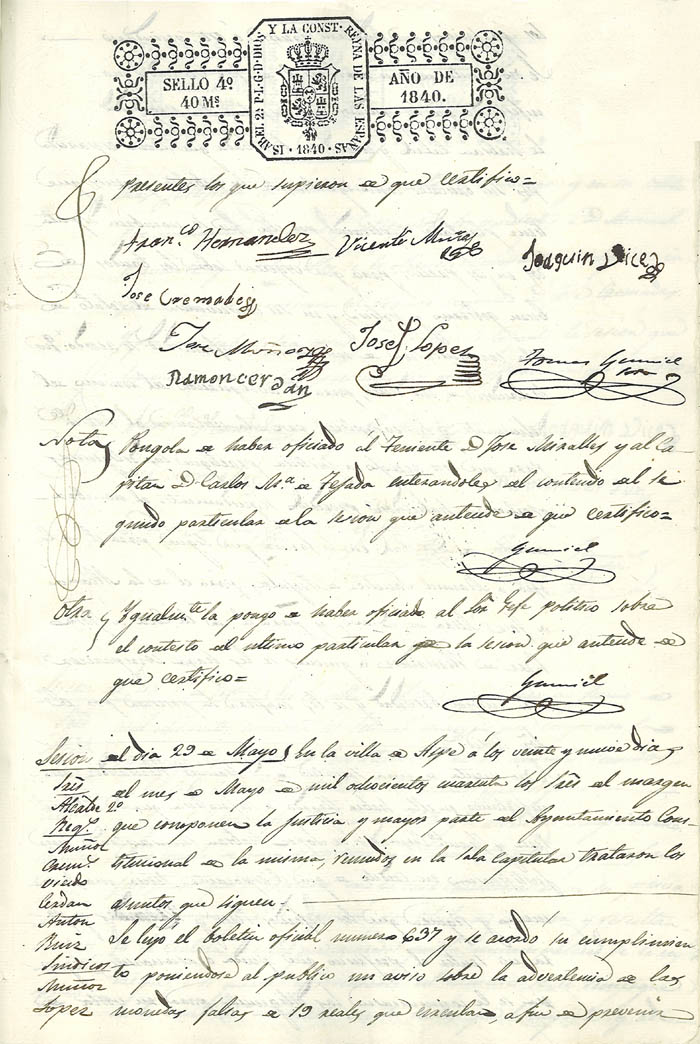 SELLO 4º
40 Mˢ
ISABEL 2ª P.L.G.D.DIOS Y LA CONST. REYNA DE LAS ESPAÑAS
1840
AÑO DE
1840.
Presentes los que supieron de que certifico=
Franco. Hernandez
Vicente Muñoz
Joaquin Vicedo
Jose Cremades
Jose Muñoz
Jose Lopez
Tomas Gumiel
Ramon cerdán
Nota
Pongola de haber oficiado al Teniente D. Jose Miralles y al Ca-
pitan D. Carlos Mª. de Tejada enterandoles del contenido del se
gundo particular de la sesion que antecede de que certifico=
Gumiel
Otra
Ygualmte. la pongo de haber oficiado al Sor. Gefe politico sobre
el contesto del ultimo particular de la sesion que antecede de
que certifico=
Gumiel
Sesion del dia 29 de Mayo
En la villa de Aspe á los veinte y nueve dias
Sres
del mes de Mayo de mil ochocientos cuarenta los Sres del margen
Alcalde 2º
Regs.
que componen la Justicia y mayor parte del Ayuntamiento Cons-
Muñoz
Crems.
titucional de la misma, reunidos en la Sala Capitular trataron los
Vicedo
Cerdan
asuntos que siguen
Anton
Ruiz
Se leyo el boletin oficial numero 637 y se acordó su cumplimien
Sindicos
to poniendose al publico un aviso sobre la advertencia de las
Muñoz
Lopez
monedas falsas de 19 reales que circulan, a fin de prevenir